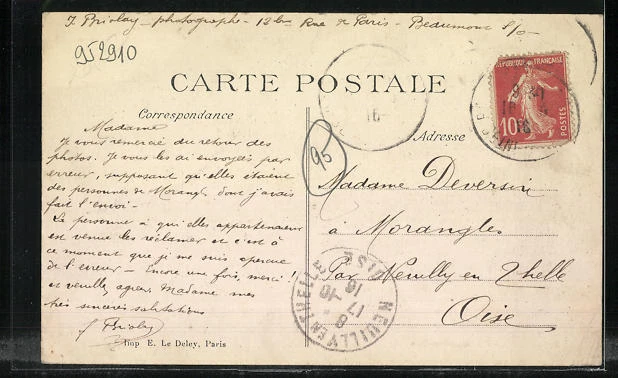 J. Briolay - photographe - 12 bis Rue de Paris - Beaumont S/O -
952910
CARTE POSTALE
RÉPUBLIQUE FRANÇAISE
10
POSTES
16
Correspondance
Adresse
95
Madame
Je vous remercie du retour des
photos. Je vous les ai envoyés par
erreur, supposant qu'elles étaient
des personnes de Morangles dont j'avais
fait l'envoi -
La personne à qui elles appartenaient
est venue les réclamer et c'est à
ce moment que je me suis aperçue
de l'erreur - Encore une fois, merci !
et veuillez agréer Madame mes
très sincères salutations
J. Briolay
Madame Deversin
à Morangles
Par Neuilly en Thelle
Oise
NEUILLY EN THELLE OISE
8
17 -10
16
Imp E. Le Deley, Paris